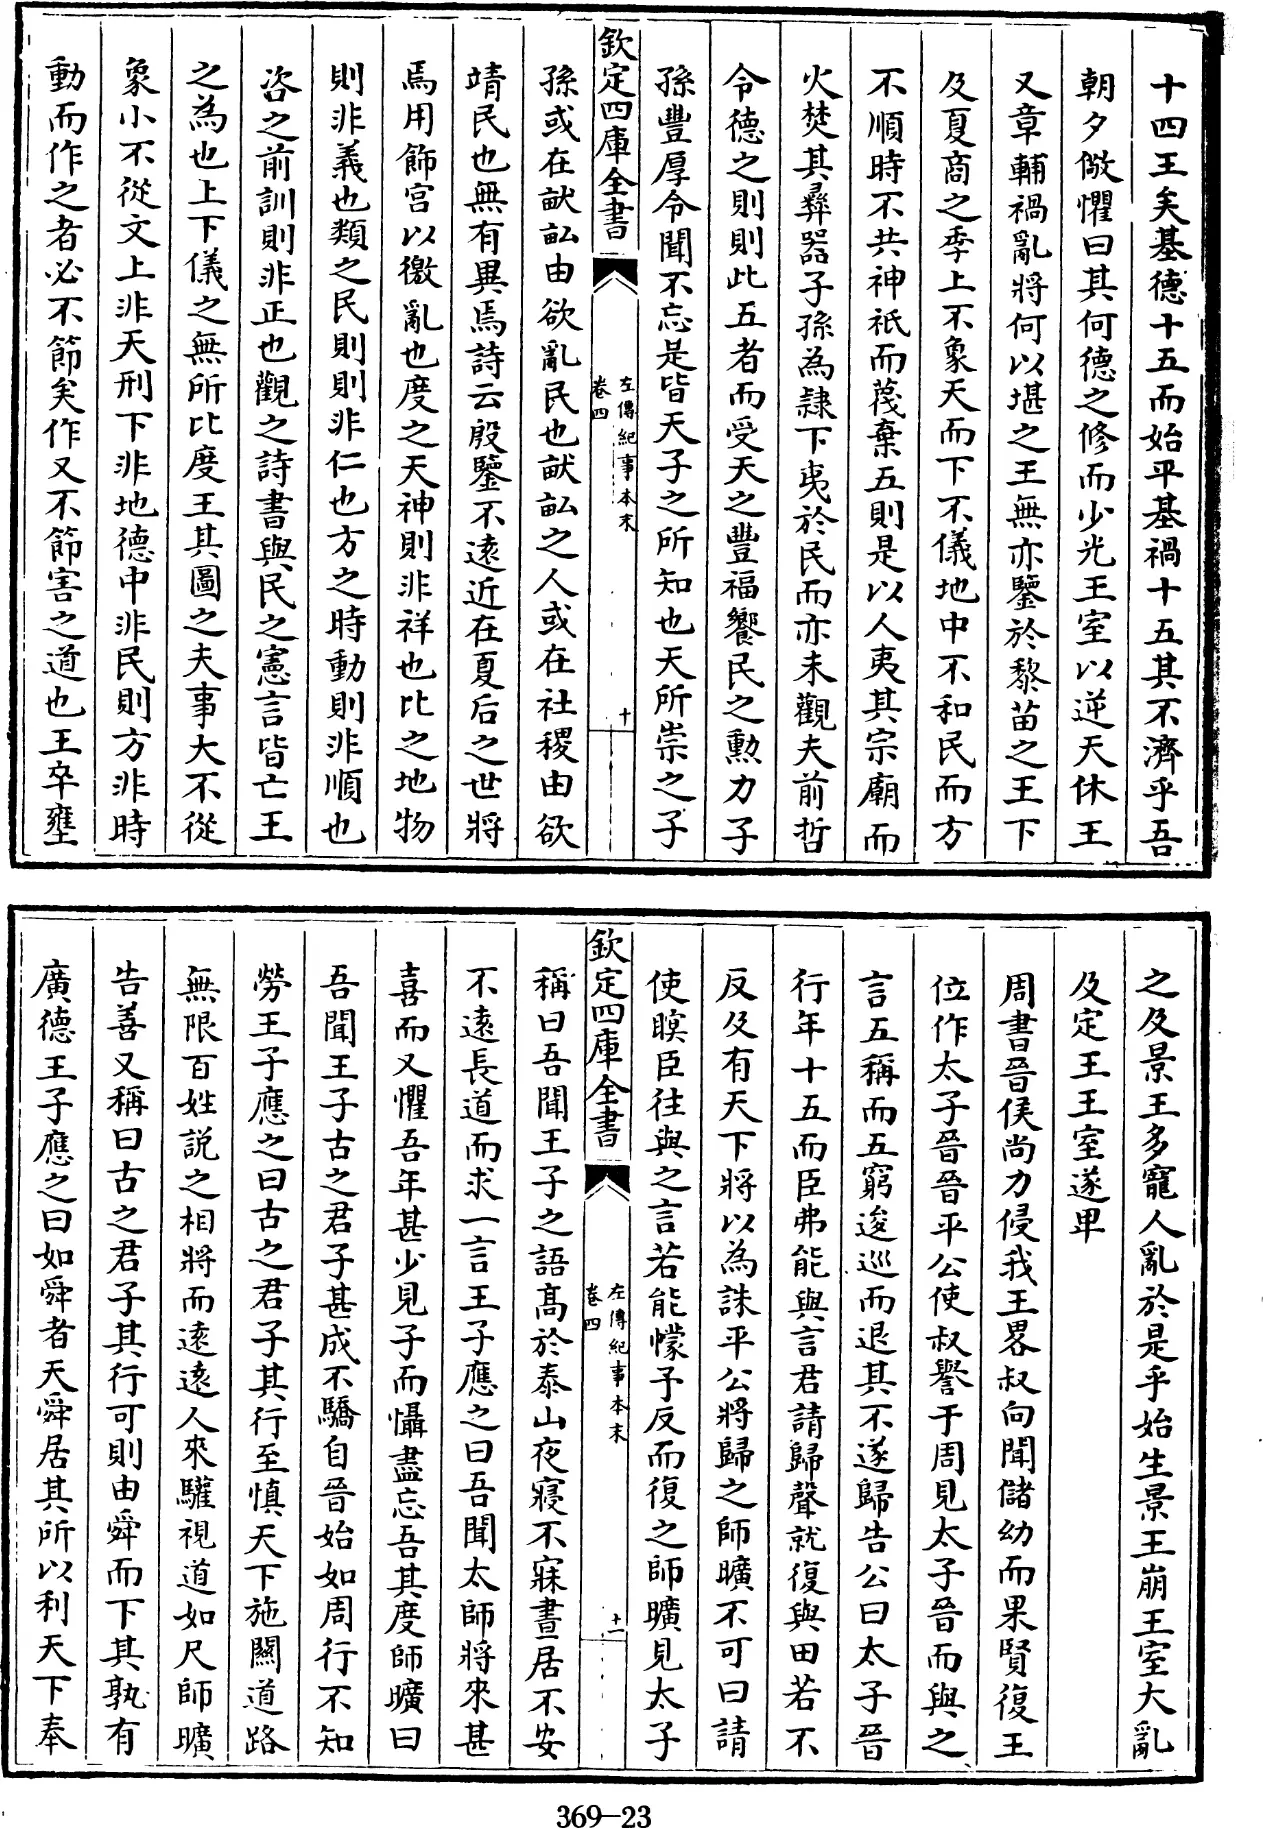 十四王矣基德十五而始平基禍十五其不濟乎吾
朝夕儆懼曰其何德之修而少光王室以逆天休王
又章輔禍亂將何以堪之王無亦鑒於黎苗之王下
及夏商之季上不象天而下不儀地中不和民而方
不順時不共神祇而蔑棄五則是以人夷其宗廟而
火焚其彝器子孫為隷下夷於民而亦未觀夫前哲
令德之則則此五者而受天之豐福饗民之勲力子
孫豐厚令聞不忘是皆天子之所知也天所崇之子
欽定四庫全書
左傳紀事本末
卷四
十
孫或在畎畆由欲亂民也畎畆之人或在社稷由欲
靖民也無有異焉詩云殷鑒不遠近在夏后之世將
焉用飾宫以徼亂也度之天神則非祥也比之地物
則非義也類之民則則非仁也方之時動則非順也
咨之前訓則非正也觀之詩書與民之憲言皆亡王
之為也上下儀之無所比度王其圖之夫事大不從
象小不從文上非天刑下非地德中非民則方非時
動而作之者必不節矣作又不節害之道也王卒壅
之及景王多寵人亂於是乎始生景王崩王室大亂
及定王王室遂卑
周書晉侯尚力侵我王畧叔向聞儲幼而果賢復王
位作太子晉晉平公使叔譽于周見太子晉而與之
言五稱而五窮逡巡而退其不遂歸告公曰太子晉
行年十五而臣弗能與言君請歸聲就復與田若不
反及有天下將以為誅平公將歸之師曠不可曰請
使瞑臣往與之言若能幪予反而復之師曠見太子
欽定四庫全書
左傳紀事本末
卷四
十一
稱曰吾聞王子之語高於泰山夜寢不寐晝居不安
不遠長道而求一言王子應之曰吾聞太師將來甚
喜而又懼吾年甚少見子而懾盡忘吾其度師曠曰
吾聞王子古之君子甚成不驕自晉始如周行不知
勞王子應之曰古之君子其行至慎天下施關道路
無限百姓説之相將而遠遠人來驩視道如尺師曠
告善又稱曰古之君子其行可則由舜而下其孰有
廣德王子應之曰如舜者天舜居其所以利天下奉
369—23